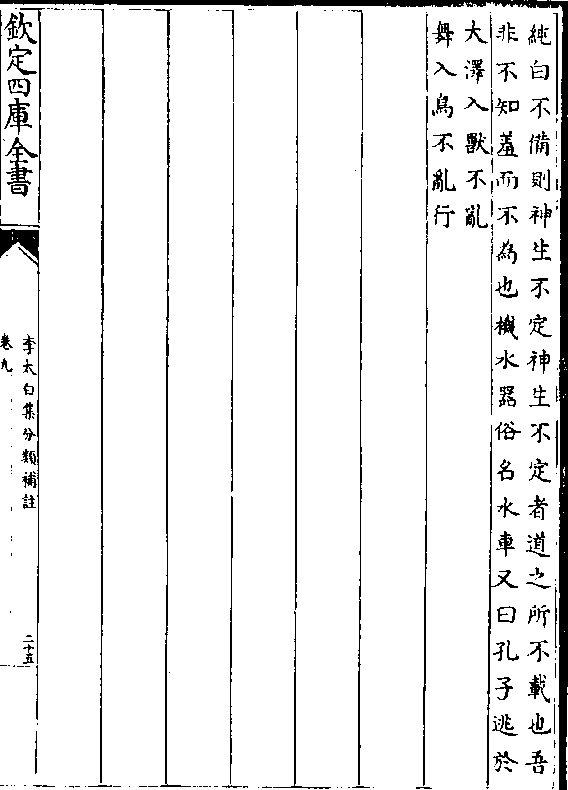 純白不備則神生不定神生不定者道之所不載也吾
非不知羞而不為也機水器俗名水車又曰孔子逃於
大澤入獸不亂
羣入鳥不亂行
欽定四庫全書
李太白集分類補註
卷九
二十五